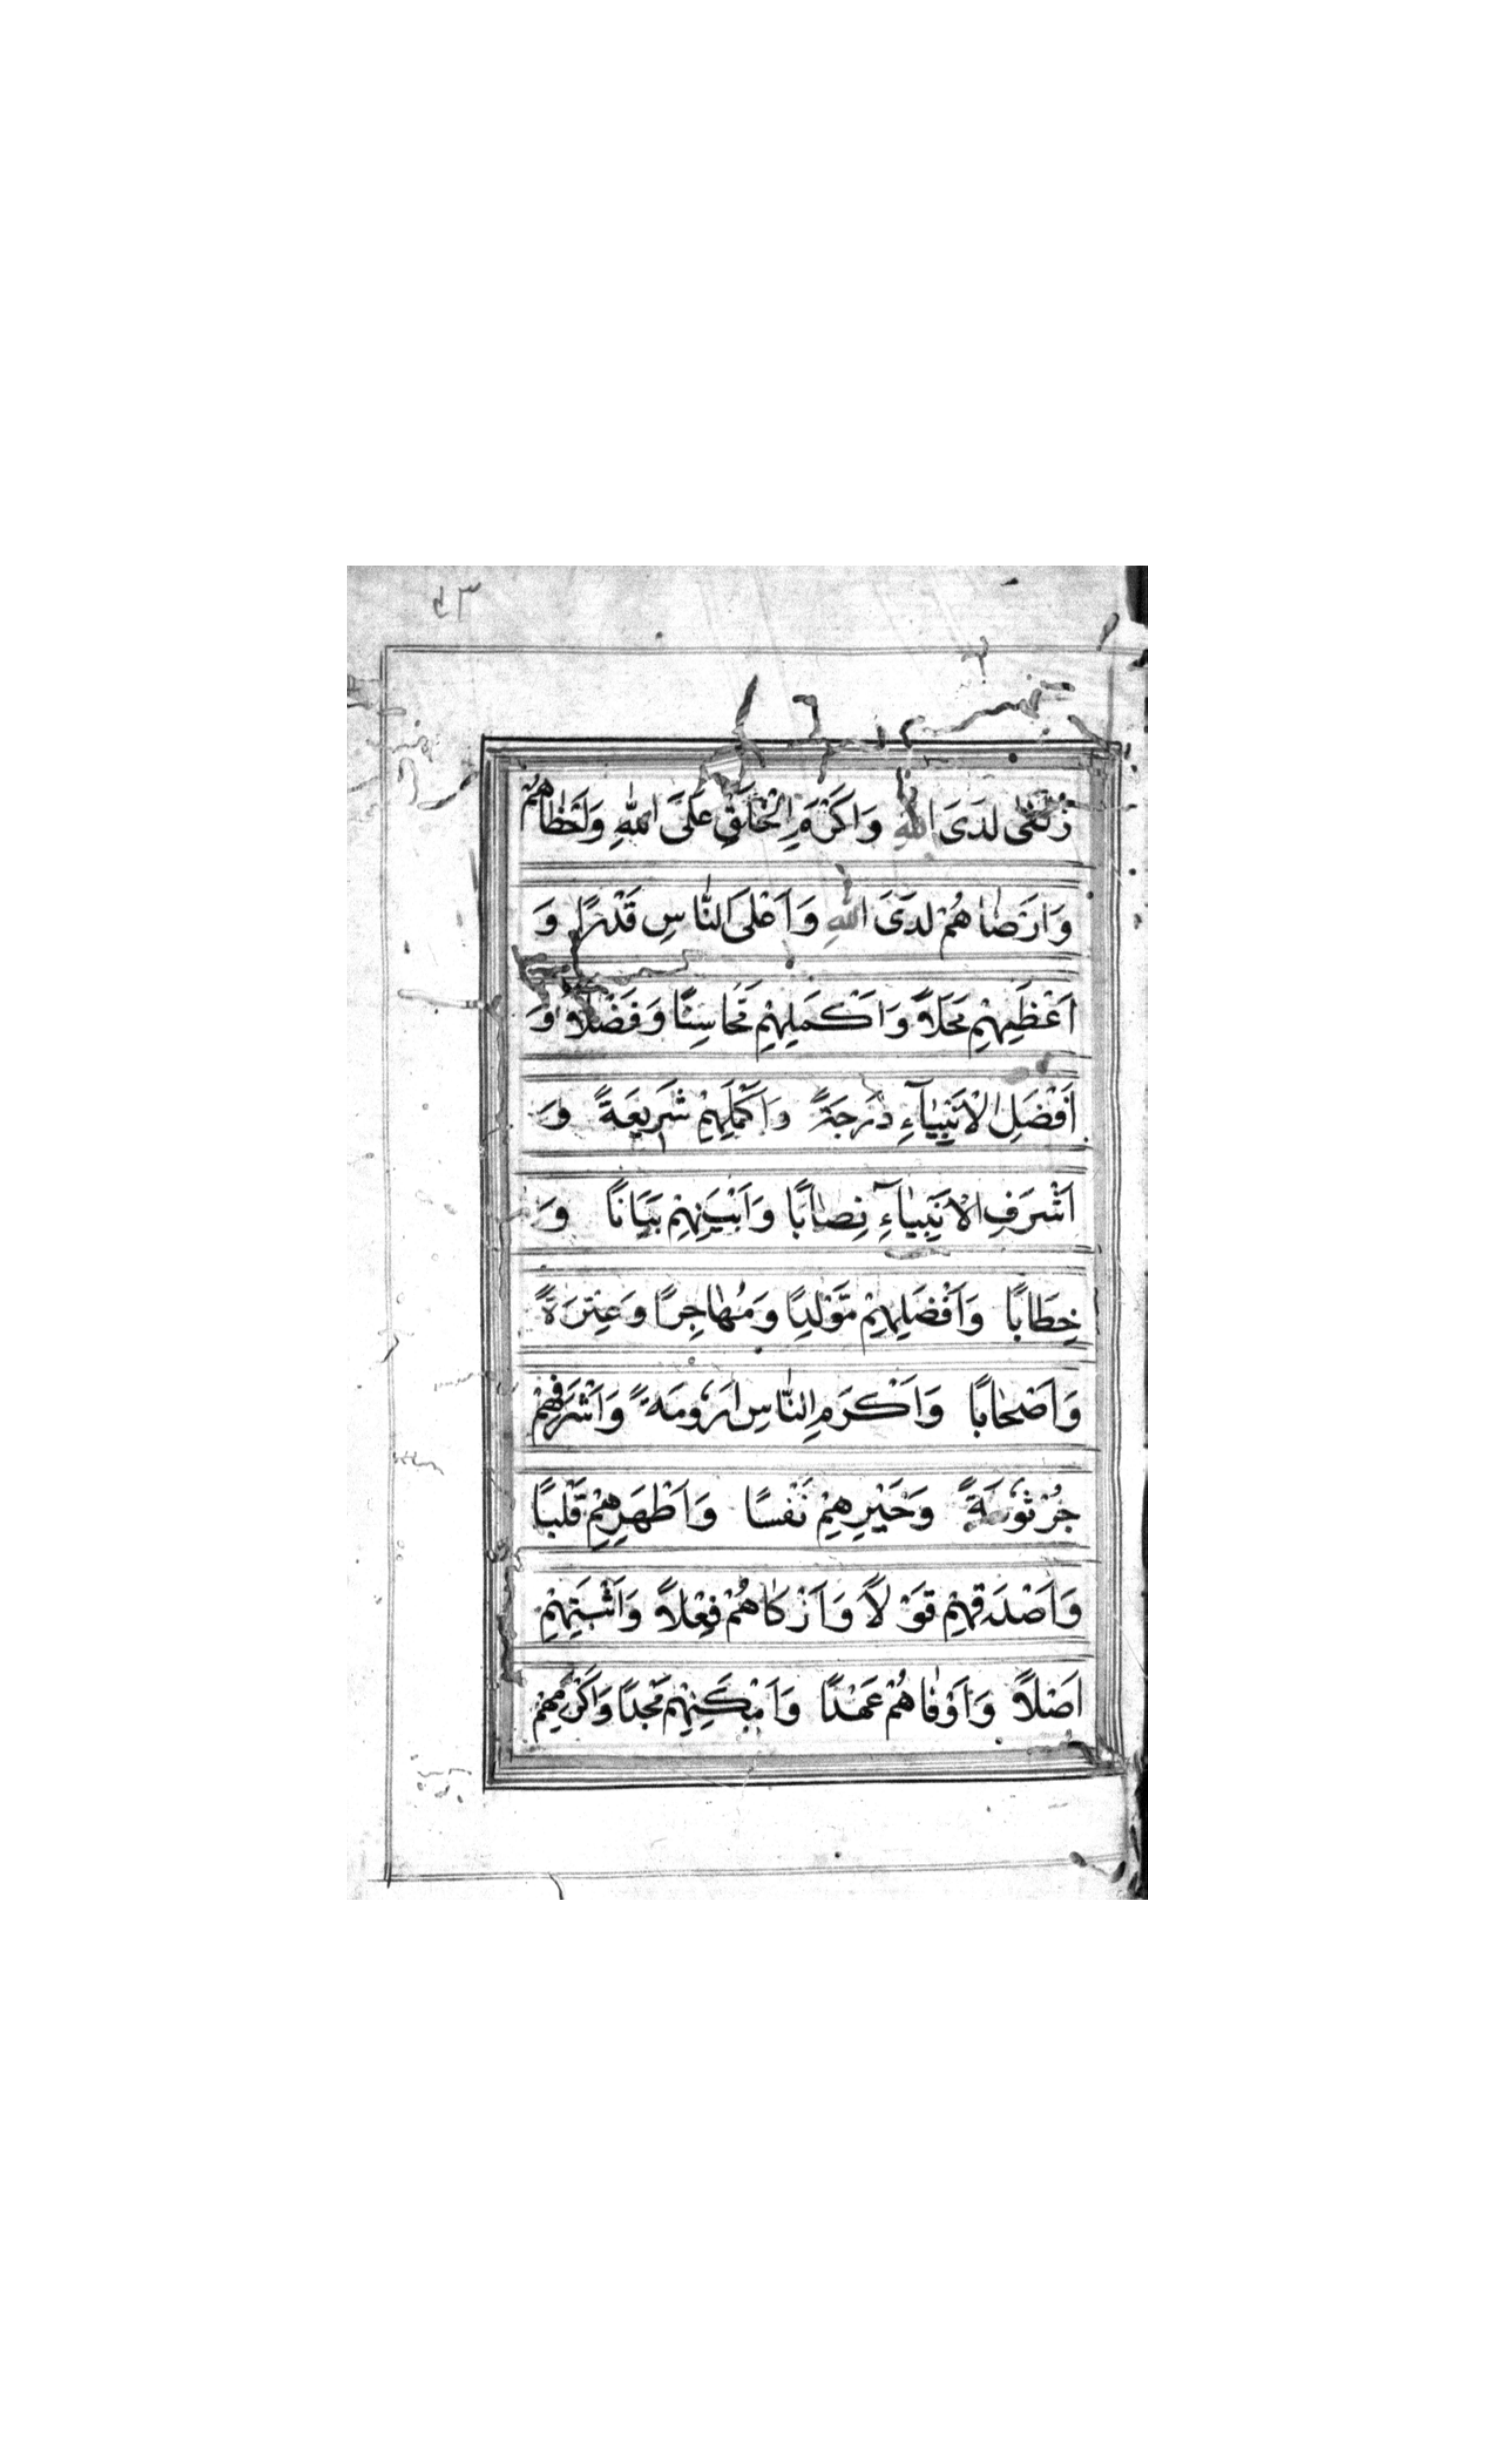 زُلْفٰى لَدَى اللّٰهِ وَاَكْرَمِ الْخَلْقِ عَلَى اللّٰهِ وَاَحْظَاهُمْ
وَاَرْضَاهُمْ لَدَى اللّٰهِ وَاَعْلَى النَّاسِ قَدْرًا وَ
اَعْظَمِهِمْ مَحَلًّا وَاَكْمَلِهِمْ مَحَاسِنًا وَفَضْلًا وَ
اَفْضَلِ الْاَنْبِيَآءِ دَرَجَةً وَاَكْمَلِهِمْ شَرِيعَةً وَ
اَشْرَفِ الْاَنْبِيَآءِ نِصَابًا وَاَبْيَنِهِمْ بَيَانًا وَ
خِطَابًا وَاَفْضَلِهِمْ مَوْلِدًا وَمُهَاجِرًا وَعِتْرَةً
وَاَصْحَابًا وَاَكْرَمِ النَّاسِ اَرُومَةً وَاَشْرَفِهِمْ
جُرْثُومَةً وَخَيْرِهِمْ نَفْسًا وَاَطْهَرِهِمْ قَلْبًا
وَاَصْدَقِهِمْ قَوْلًا وَاَزْكَاهُمْ فِعْلًا وَاَثْبَتِهِمْ
اَصْلًا وَاَوْفَاهُمْ عَهْدًا وَاَمْكَنِهِمْ مَجْدًا وَاَكْرَمِهِمْ